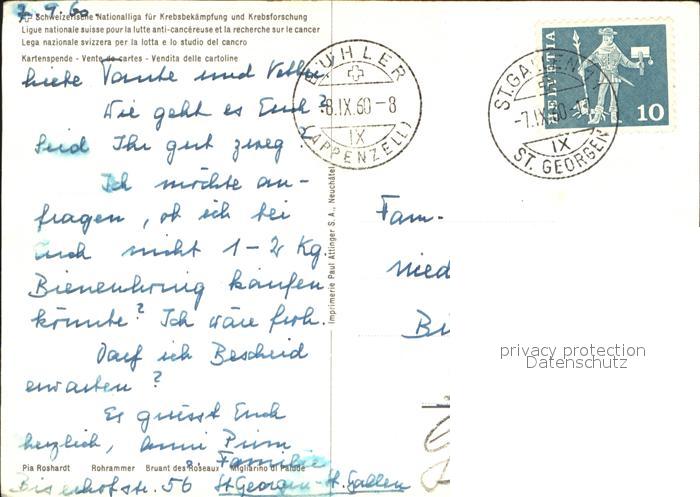 7.9.60
Schweizerische Nationalliga für Krebsbekämpfung und Krebsforschung
Ligue nationale suisse pour la lutte anti-cancéreuse et la recherche sur le cancer
Lega nazionale svizzera per la lotta e lo studio del cancro
Kartenspende - Vente de cartes - Vendita delle cartoline
liebe Tante und Vetter
Wie geht es Euch?
Seid Ihr gut zweg?
Ich möchte an-
fragen, ob ich bei
Euch nicht 1-2 Kg.
Bienenhonig kaufen
könnte? Ich wäre froh.
Darf ich Bescheid
erwarten?
Es grüsst Euch
herzlich, Anni
Familie
Pia Roshardt Rohrammer Bruant des Roseaux Migliarino di Palude
56 St. Georgen - St. Gallen
Imprimerie Paul Attinger S.A., Neuchâtel
BÜHLER
-8.IX.60-8
IX
(APPENZELL)
HELVETIA
10
ST. GALLEN
-7.IX.60
IX
ST. GEORGEN
Fam.
nied
Bi
privacy protection
Datenschutz